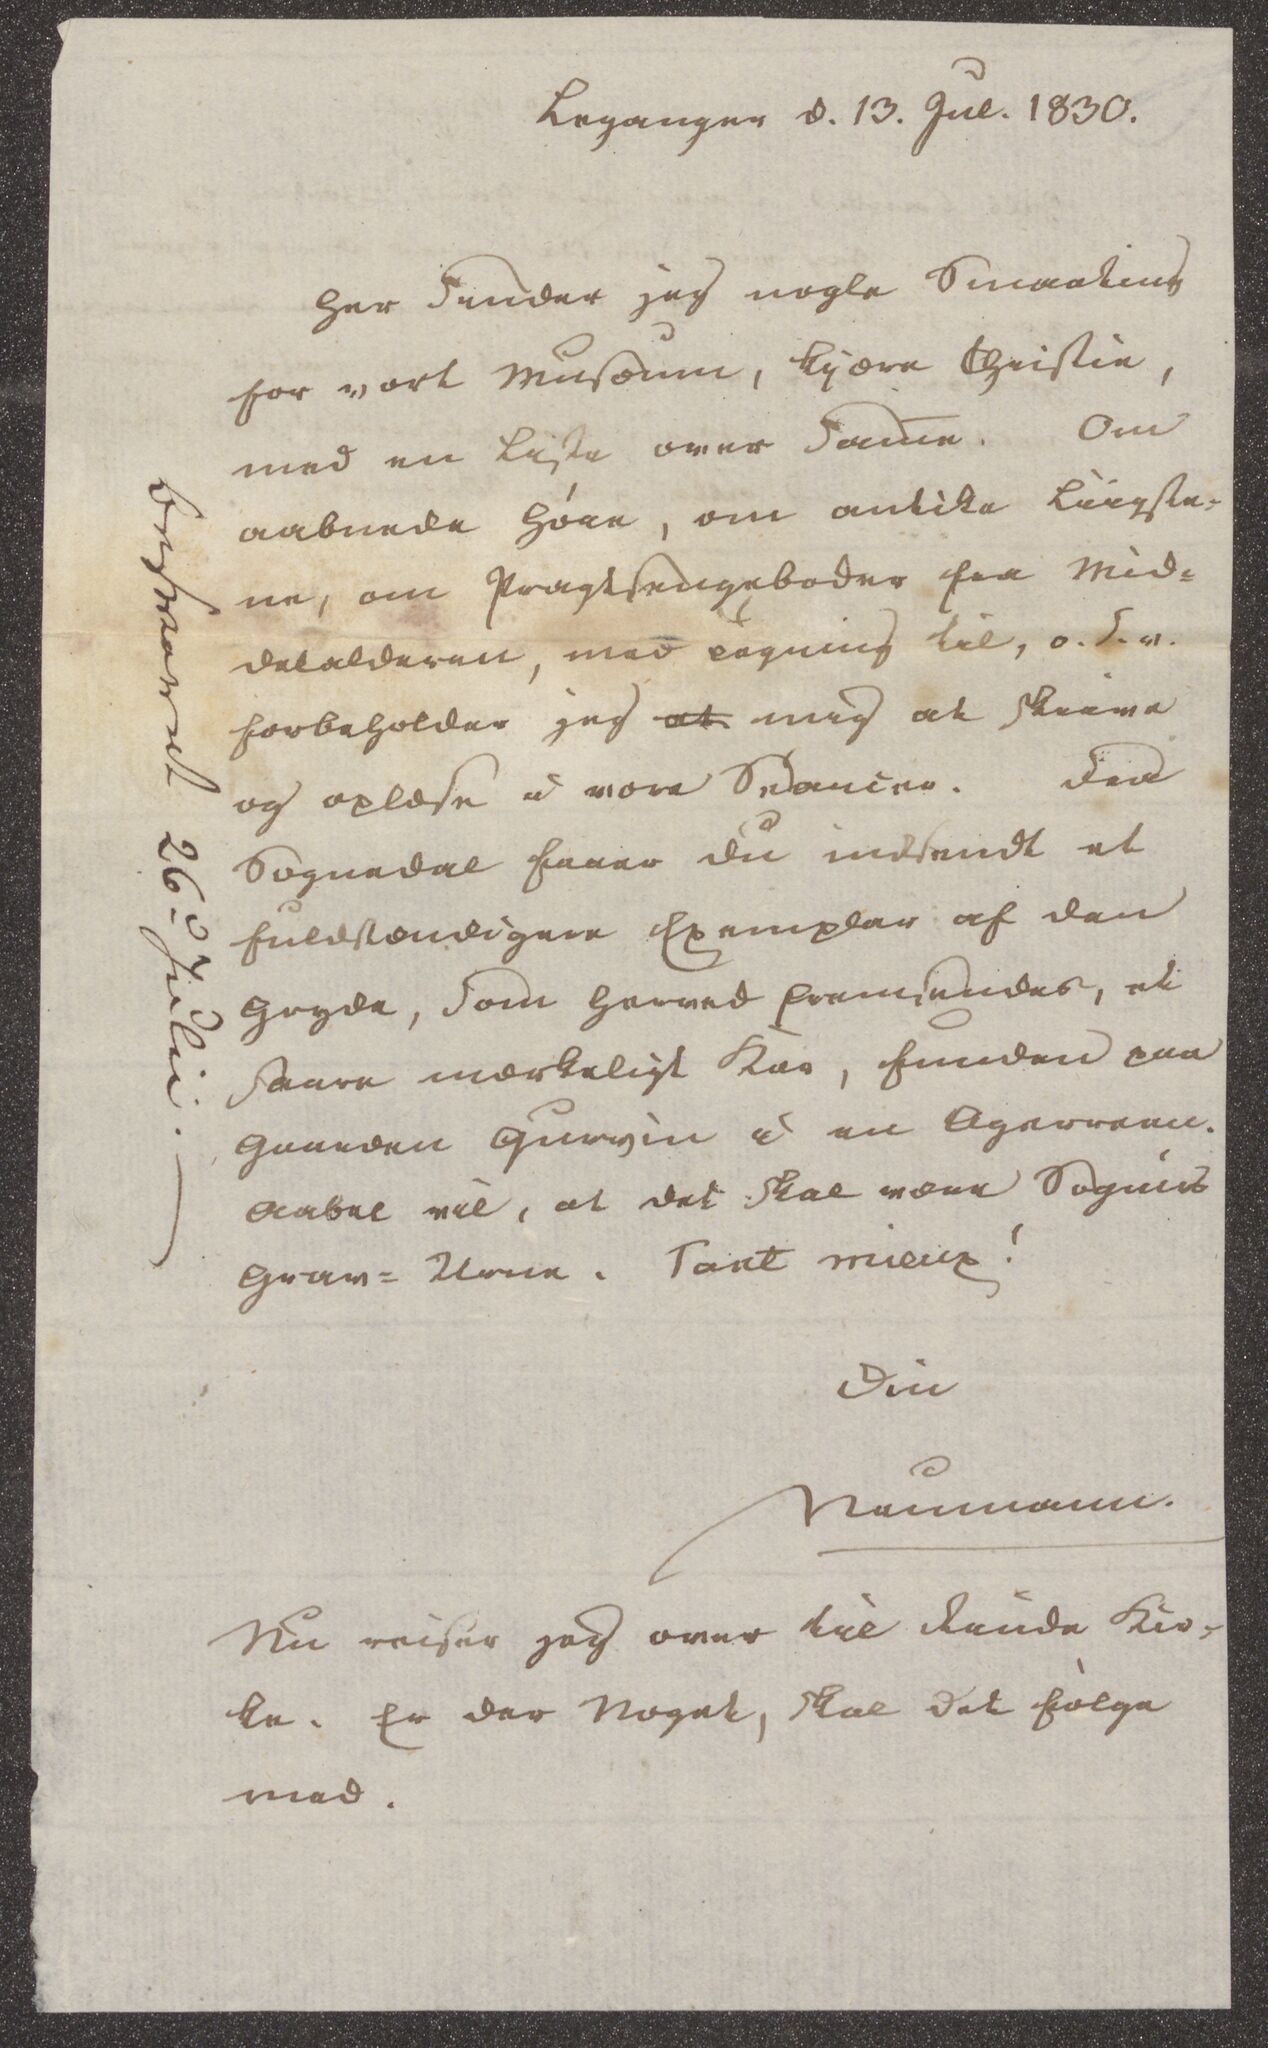 Leganger d. 13. Jul. 1830.
Her sender jeg nogle Smaating
for vort Musæum, kjære Christie,
med en Liste over samme. Om
aabnede Höie, om antike Liigste-
ne, om Pragtsengeboder fra Mid-
delalderen, med Tegning til, o. s. v.
forbeholder jeg at mig at skrive
og oplæse i vore Séancer. Fra
Sognedal faaer du indsendt et
fuldstændigere Exemplar af den
Gryde, som herved fremsendes, et
saare mærkeligt Kar, funden paa
Gaarden Qurvin i en Agerreen.
Aabel vil, at det skal være Sognis
Grav-Urne. Tant mieux!
Din
Neumann.
Nu reiser jeg over til Rinde Kir-
ke. Er der Noget, skal det fölge
med.
besvaret 26d Julii.